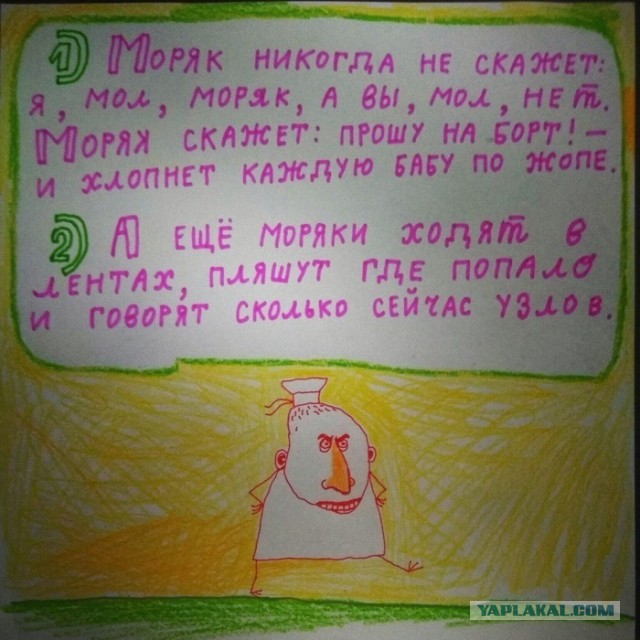 1) Моряк никогда не скажет:
я, мол, моряк, а вы, мол, нет.
Моряк скажет: прошу на борт! –
и хлопнет каждую бабу по жопе.
2) А ещё моряки ходят в
лентах, пляшут где попало
и говорят сколько сейчас узлов.
YAPLAKAL.COM